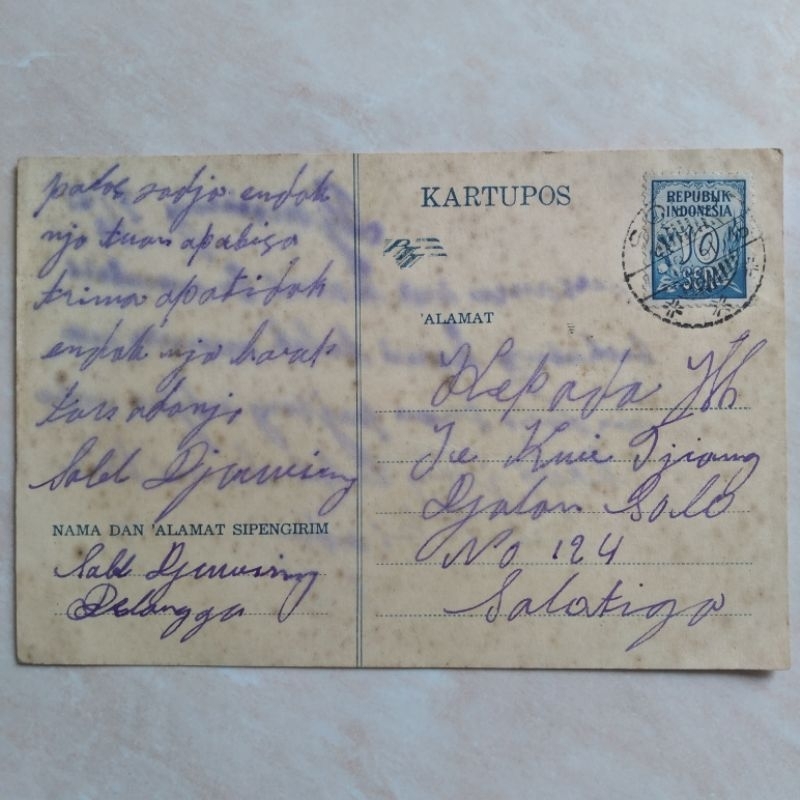 palos sadja endak
nja tuan apabisa
trima apatidak
endak nja harap
Sabl Djuwiring
NAMA DAN 'ALAMAT SIPENGIRIM
Sabl Djuwiring
Delanggu
KARTUPOS
REPUBLIK
INDONESIA
10
SEN
'ALAMAT
Kepada Jth
Kwie Tjiang
Djalan Solo
No 124
Salatiga